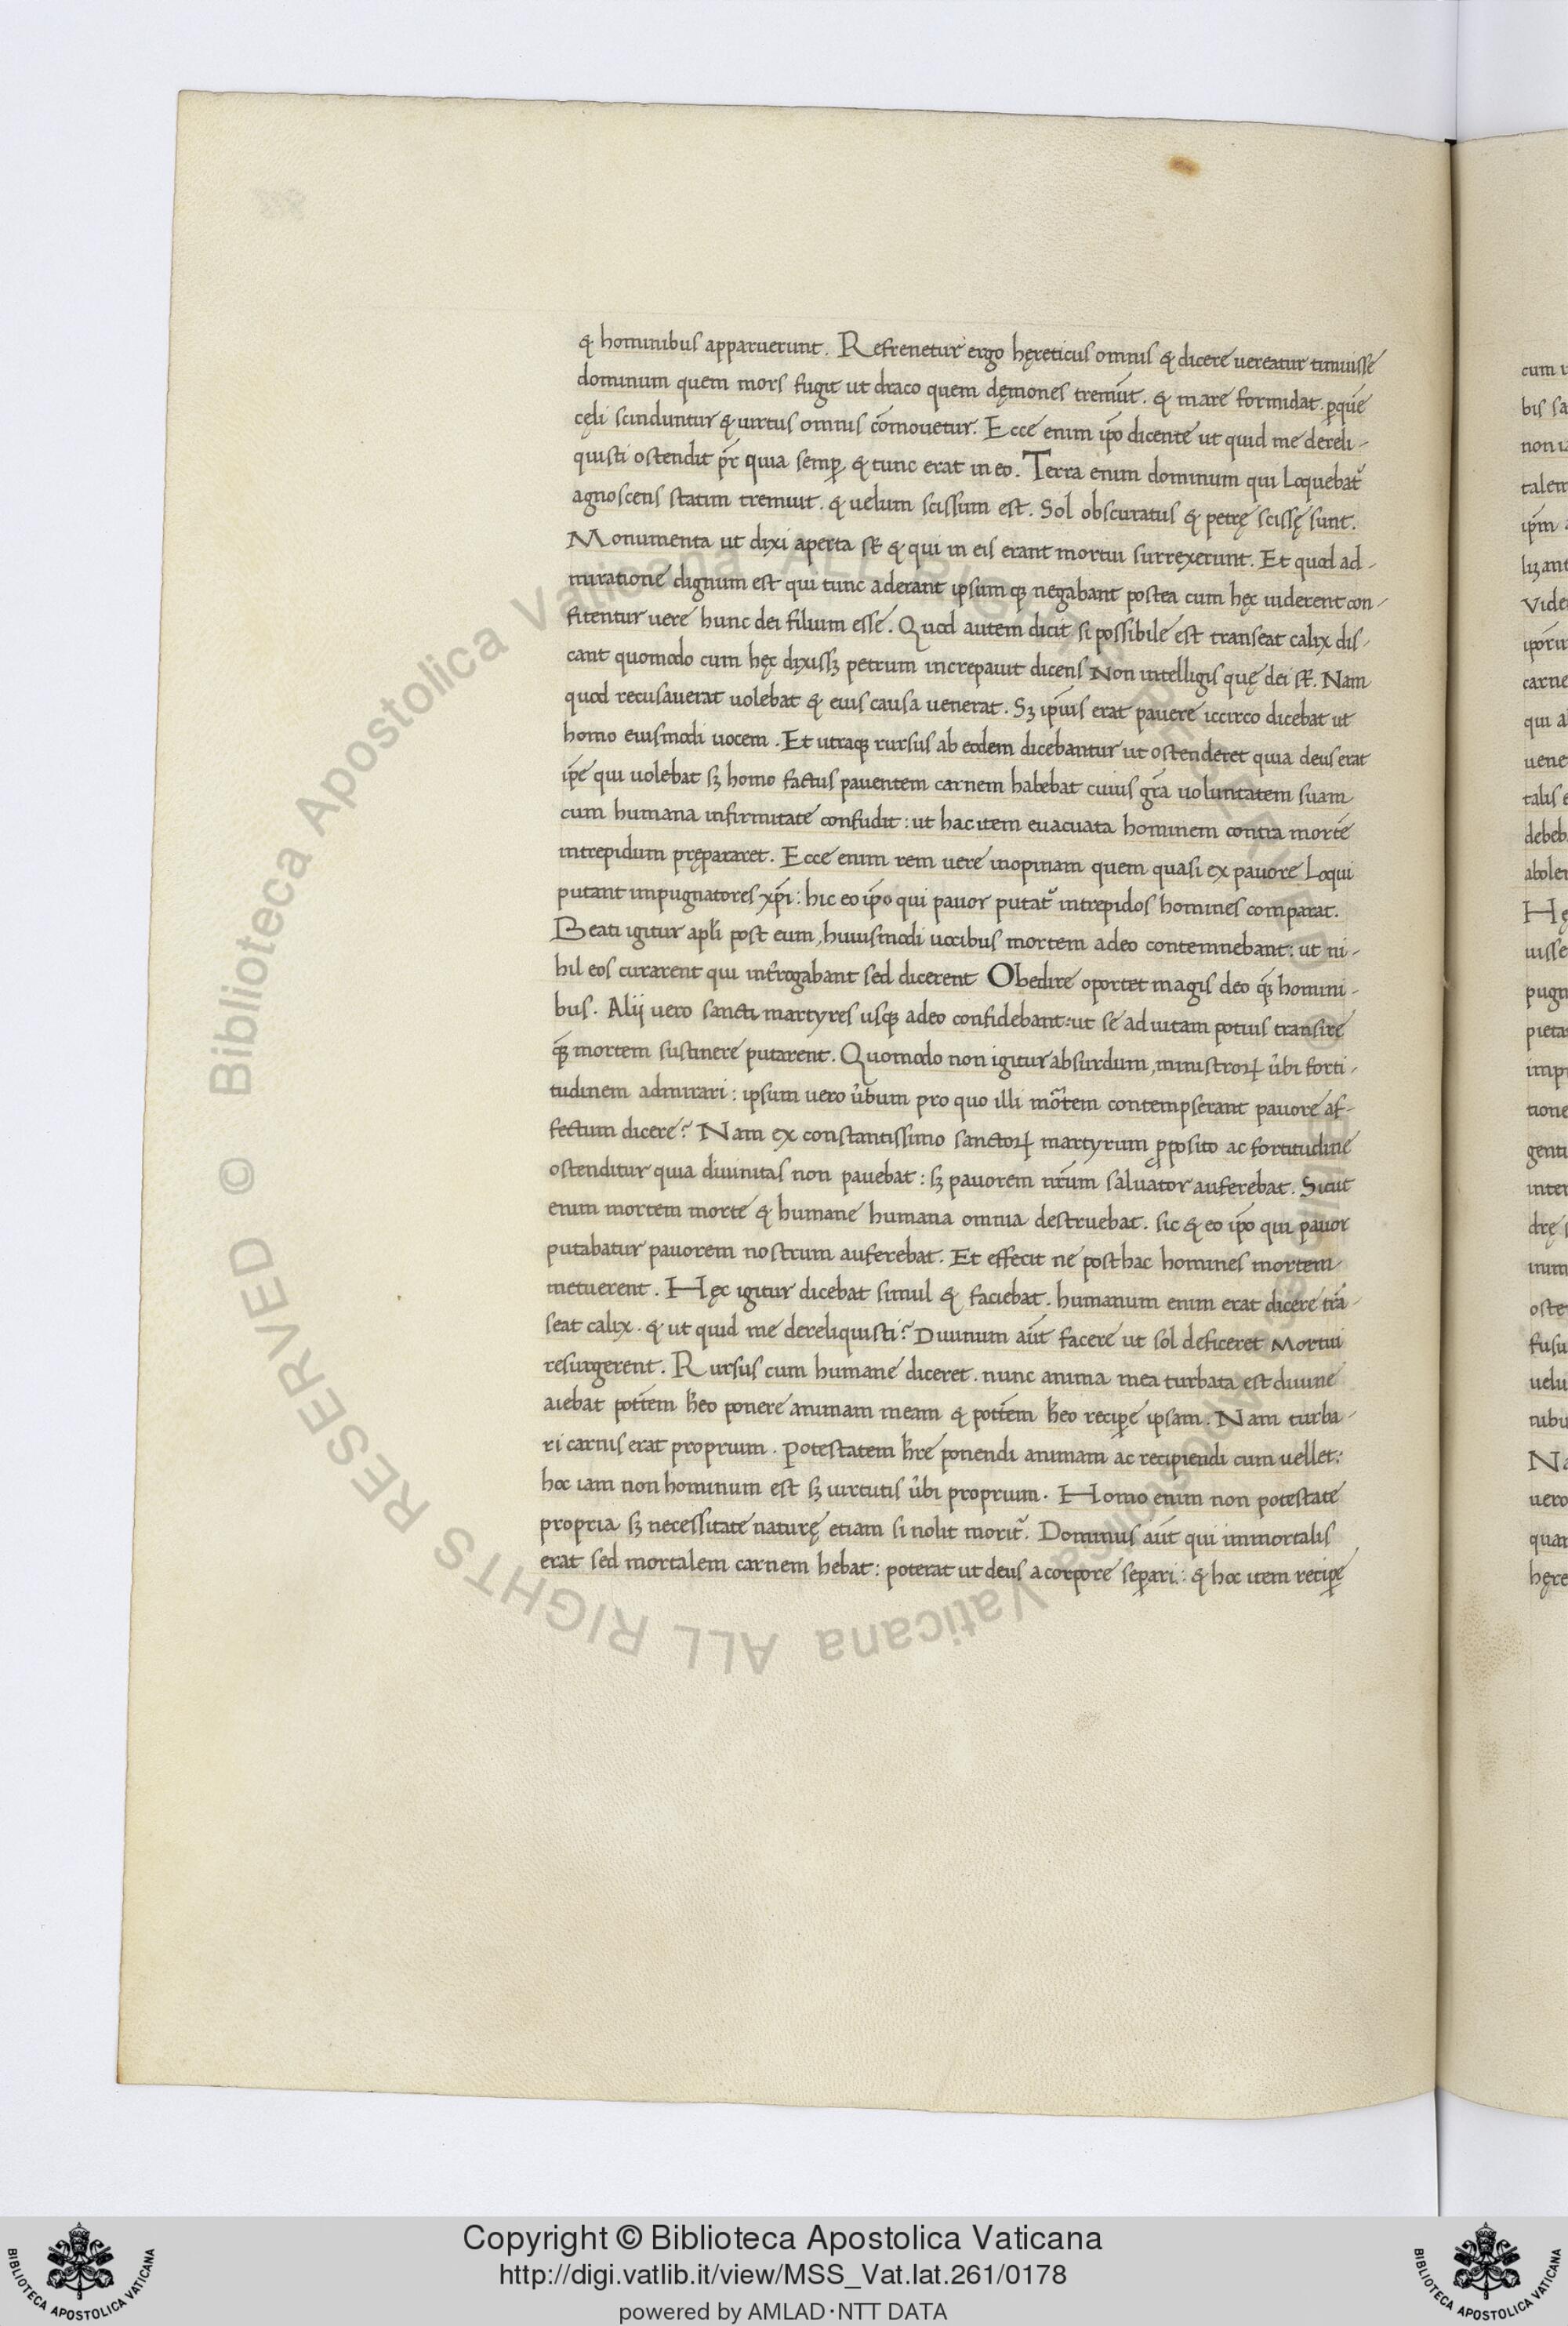 & hominibus apparuerunt. Refrenetur ergo hęreticus omnis & dicere uereatur timuisse
dominum quem mors fugit ut draco quem dęmones tremūt. & mare formidat. ꝑquē
cęli scinduntur & uirtus omnis cōmouetur. Ecce enim ip̄o dicente ut quid me dereli-
quisti ostendit pr̄ quia semꝑ & tunc erat in eo. Terra enim dominum qui loquebat᷑
agnoscens statim tremuit. & uelum scissum est. Sol obscuratus & petrę scissę sunt.
Monumenta ut dixi aperta st̄ & qui in eis erant mortui surrexerunt. Et quod ad-
miratione dignum est qui tunc aderant ipsumqꝫ negabant postea cum hęc uiderent con-
fitentur uere hunc dei filium esse. Quod autem dicit si possibile est transeat calix dis-
cant quomodo cum hęc dixissꝫ petrum increpauit dicens Non intelligis quę dei st̄. Nam
quod recusauerat uolebat & eius causa uenerat. Sꝫ ip̄ius erat pauere iccirco dicebat ut
homo eiusmodi uocem. Et utraqꝫ rursus ab eodem dicebantur ut ostenderet quia deus erat
ip̄e qui uolebat sꝫ homo factus pauentem carnem habebat cuius gr̄a uoluntatem suam
cum humana infirmitate confudit: ut hac item euacuata hominem contra mortē
intrepidum prępararet. Ecce enim rem uere inopinam quem quasi ex pauore loqui
putant impugnatores xp̄i: hic eo ip̄o qui pauor putat᷑ intrepidos homines comparat.
Beati igitur apl̄i post eum, huiusmodi uocibus mortem adeo contemnebant: ut ni-
hil eos curarent qui int̄rogabant sed dicerent Obedire oportet magis deo qꝫ̄ homini-
bus. Alij uero sancti martyres usqꝫ adeo confidebant: ut se ad uitam potius transire
qꝫ̄ mortem sustinere putarent. Quomodo non igitur absurdum, ministroꝝ u̅bi forti-
tudinem admirari: ipsum uero u̅bum pro quo illi mōtem contempserant pauore af-
fectum dicere? Nam ex constantissimo sanctoꝝ martyrum ꝓposito ac fortitudine
ostenditur quia diuinitas non pauebat: sꝫ pauorem nr̄um saluator auferebat. Sicut
enim mortem morte & humane humana omnia destruebat. sic & eo ip̄o qui pauor
putabatur pauorem nostrum auferebat. Et effecit ne posthac homines mortem
metuerent. Hęc igitur dicebat simul & faciebat. humanum enim erat dicere trā-
seat calix. & ut quid me dereliquisti? Diuinum aūt facere ut sol deficeret Mortui
resurgerent. Rursus cum humane diceret. nunc anima mea turbata est diuine
aiebat pott̄em h̄eo ponere animam meam & pott̄em h̄eo reciꝑe ipsam. Nam turba-
ri carnis erat proprium. Potestatem h̄re ponendi animam ac recipiendi cum uellet:
hoc iam non hominum est sꝫ uirtutis u̅bi proprium. Homo enim non potestate
propria sꝫ necessitate naturę etiam si nolit morit᷑. Dominus aūt qui immortalis
erat sed mortalem carnem hebat: poterat ut deus a corpore seꝑari: & hoc item reciꝑe
Copyright © Biblioteca Apostolica Vaticana
http://digi.vatlib.it/view/MSS_Vat.lat.261/0178
powered by AMLAD·NTT DATA
BIBLIOTECA APOSTOLICA VATICANA
BIBLIOTECA APOSTOLICA VATICANA
© Biblioteca Apostolica Vaticana ALL RIGHTS RESERVED © Biblioteca Apostolica Vaticana ALL RIGHTS RESERVED